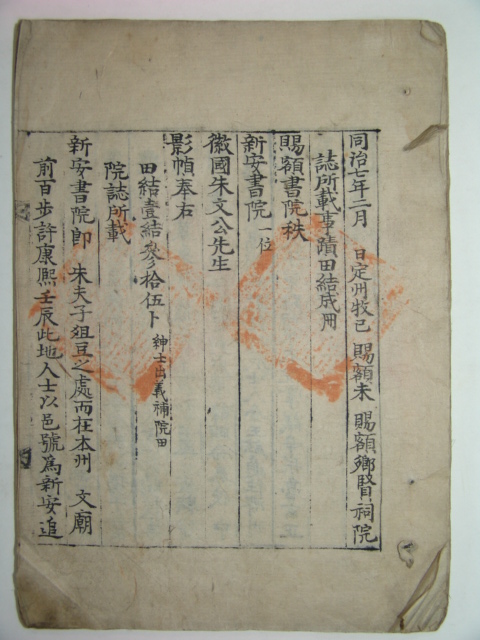 同治七年二月 日定州牧已 賜額未 賜額鄉賢祠院
誌所載事蹟田結成冊
賜額書院秩
新安書院 一位
徽國朱文公先生
影幀奉右
田結壹結參拾伍卜 紳士出義補院田
院誌所載
新安書院即 朱夫子俎豆之處而在本州 文廟
前百步許康熙壬辰此地人士以邑號爲新安追